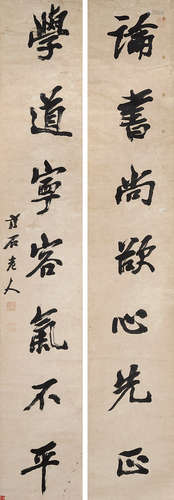 論書尚欲心先正
學道寧容氣不平
老人